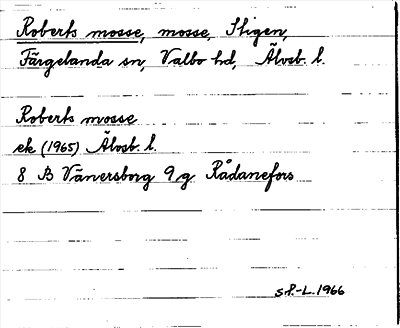 Roberts mosse, mosse, Stigen,
Färgelanda sn, Valbo hd, Älvsb. l.
Roberts mosse
ek (1965) Älvsb. l.
8 B Vänersborg 9 g Rådanefors
S.P.-L. 1966